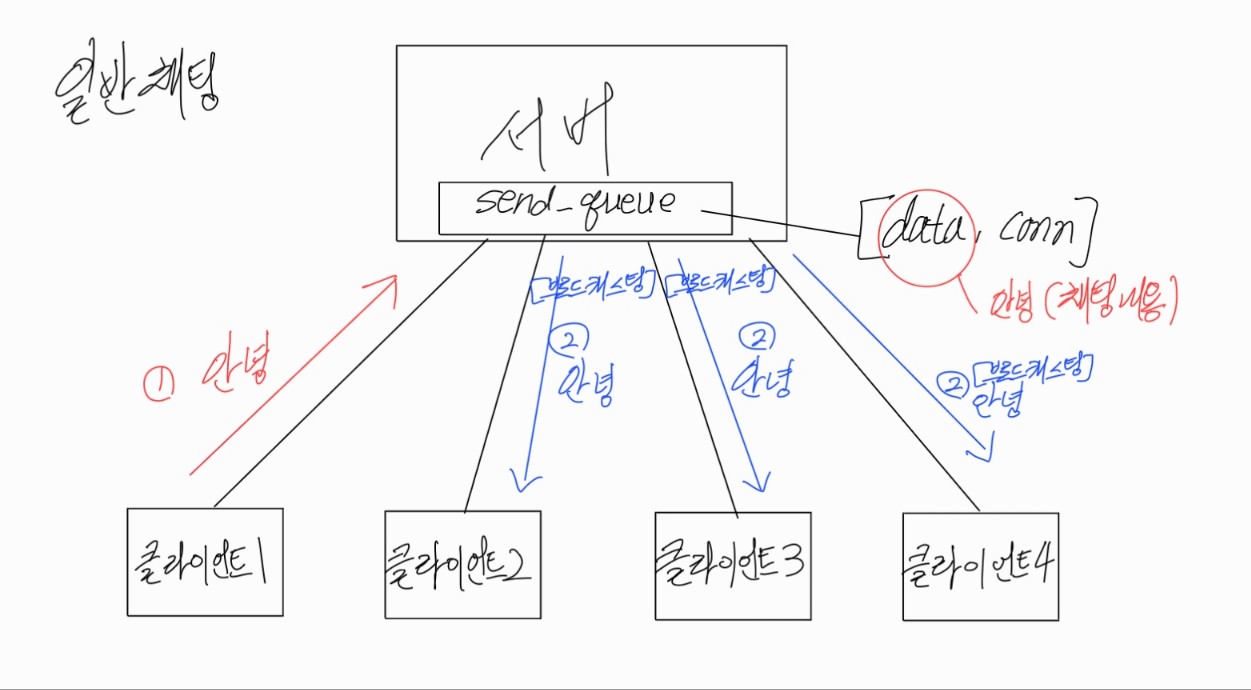 일반채팅
서버
send_queue
[data, conn]
안녕 (채팅내용)
① 안녕
[브로드캐스팅]
② 안녕
[브로드캐스팅]
② 안녕
② [브로드캐스팅]
안녕
클라이언트1
클라이언트2
클라이언트3
클라이언트4